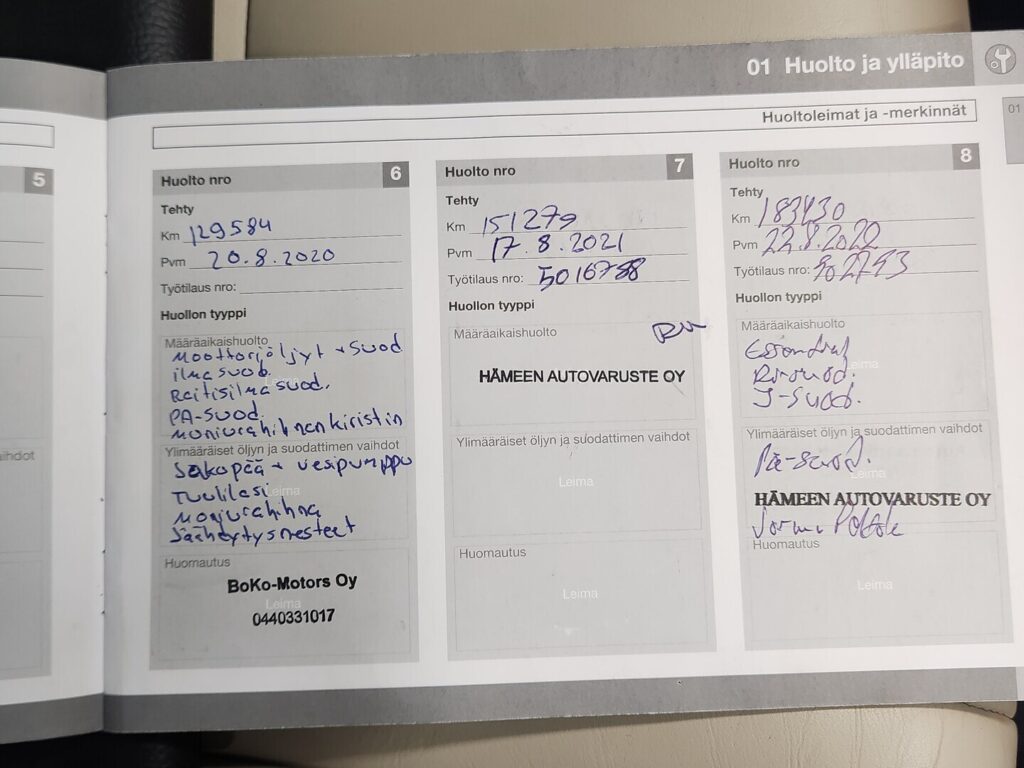 01 Huolto ja ylläpito
01
Huoltoleimat ja -merkinnät
5
ihdot
Huolto nro 6
Tehty
Km 129584
Pvm 20.8.2020
Työtilaus nro:
Huollon tyyppi
Määräaikaishuolto
Moottoriöljyt + suod
ilmasuod.
Raitisilmasuod.
PA-suod.
moniurahihnan kiristin
Ylimääräiset öljyn ja suodattimen vaihdot
Jakopää + vesipumppu
Tuulilasi
Leima
moniurahihna
Jäähdytysnesteet
Huomautus
BoKo-Motors Oy
Leima
0440331017
Huolto nro 7
Tehty
Km 151279
Pvm 17.8.2021
Työtilaus nro: 5016788
Huollon tyyppi
Määräaikaishuolto
HÄMEEN AUTOVARUSTE OY
Ylimääräiset öljyn ja suodattimen vaihdot
Leima
Huomautus
Leima
Huolto nro 8
Tehty
Km 183430
Pvm 22.8.2022
Työtilaus nro: 902793
Huollon tyyppi
Määräaikaishuolto
Essential
Leima
I-suod.
Ylimääräiset öljyn ja suodattimen vaihdot
Pa-suod.
Leima
HÄMEEN AUTOVARUSTE OY
Huomautus
Leima